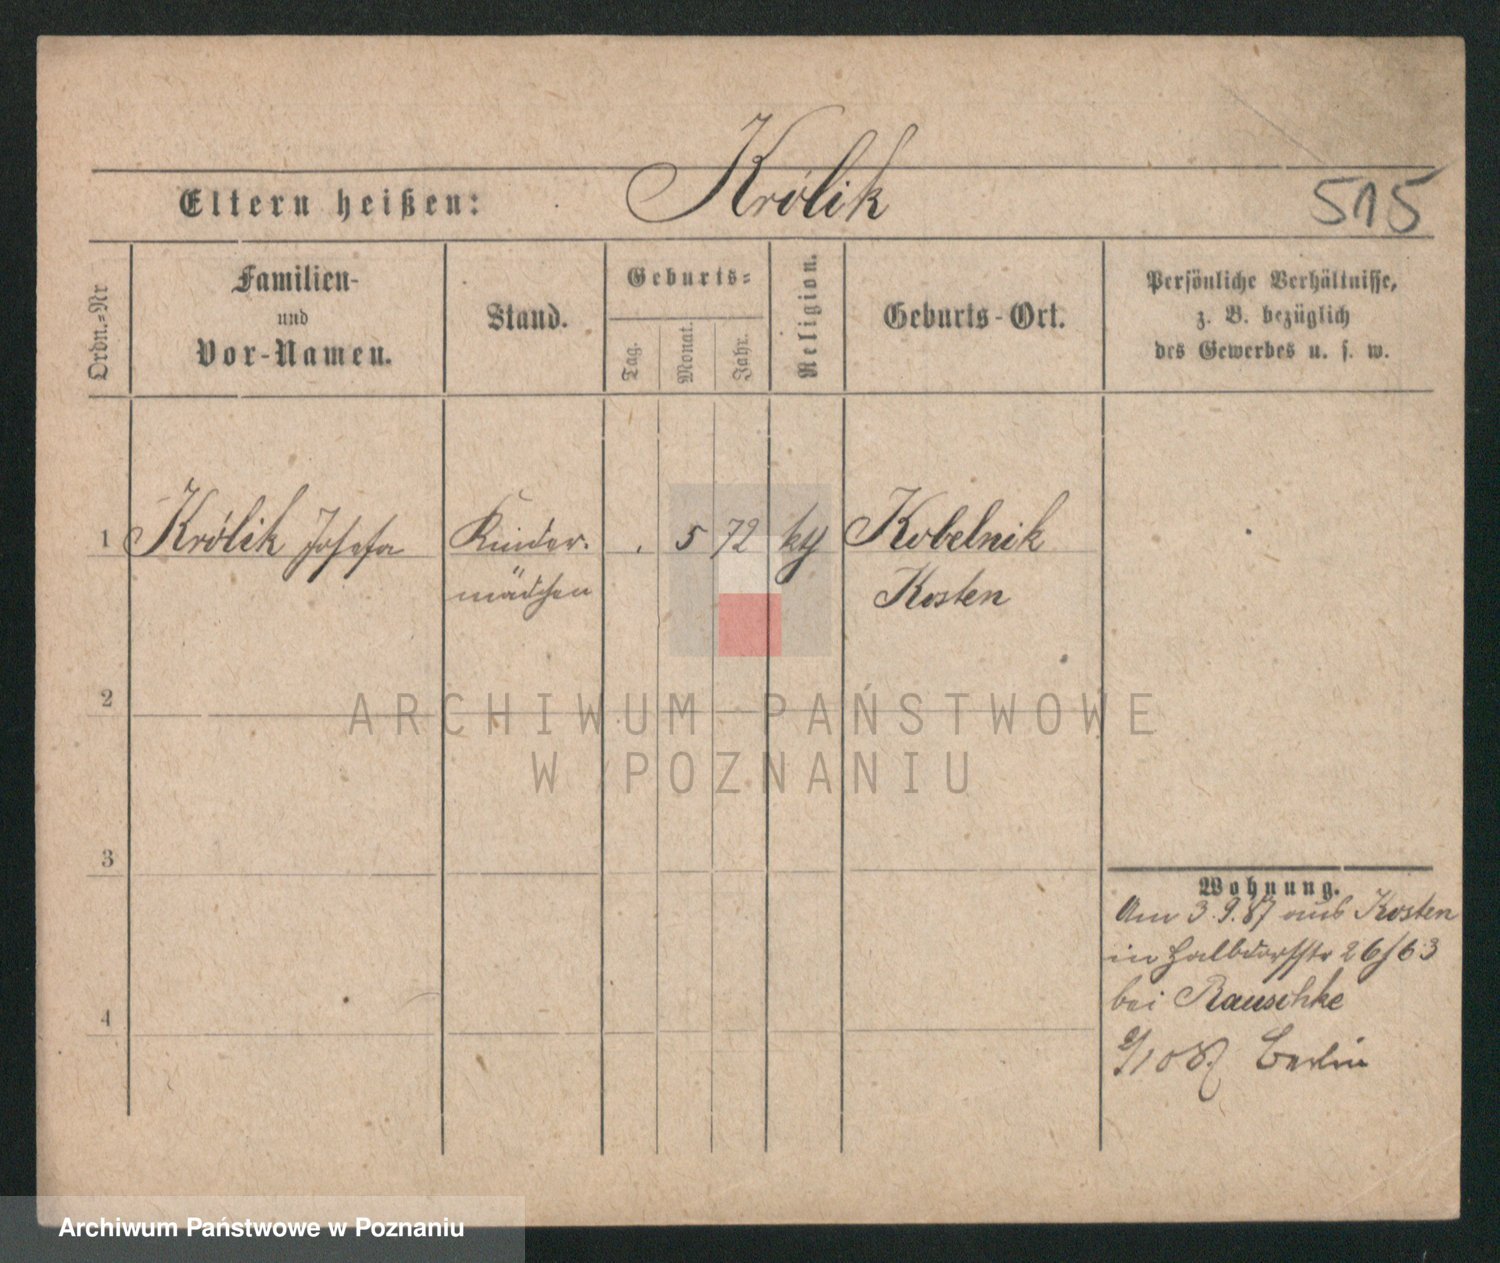 Królik
Eltern heißen:
515
Ordn.-Nr
Familien-
und
Vor-Namen.
Stand.
Geburts-
Tag.
Monat.
Jahr.
Religion.
Geburts-Ort.
Persönliche Verhältnisse,
z. B. bezüglich
des Gewerbes u. s. w.
1 Królik Josefa Kinder- . 5 72 Kobelnik
mädchen Kosten
2
ARCHIWUM PAŃSTWOWE
W POZNANIU
3
Wohnung.
Am 3.9.87 aus Kosten
in Halbdorfstr 26/63
bei Rauschke
Berlin
4
Archiwum Państwowe w Poznaniu